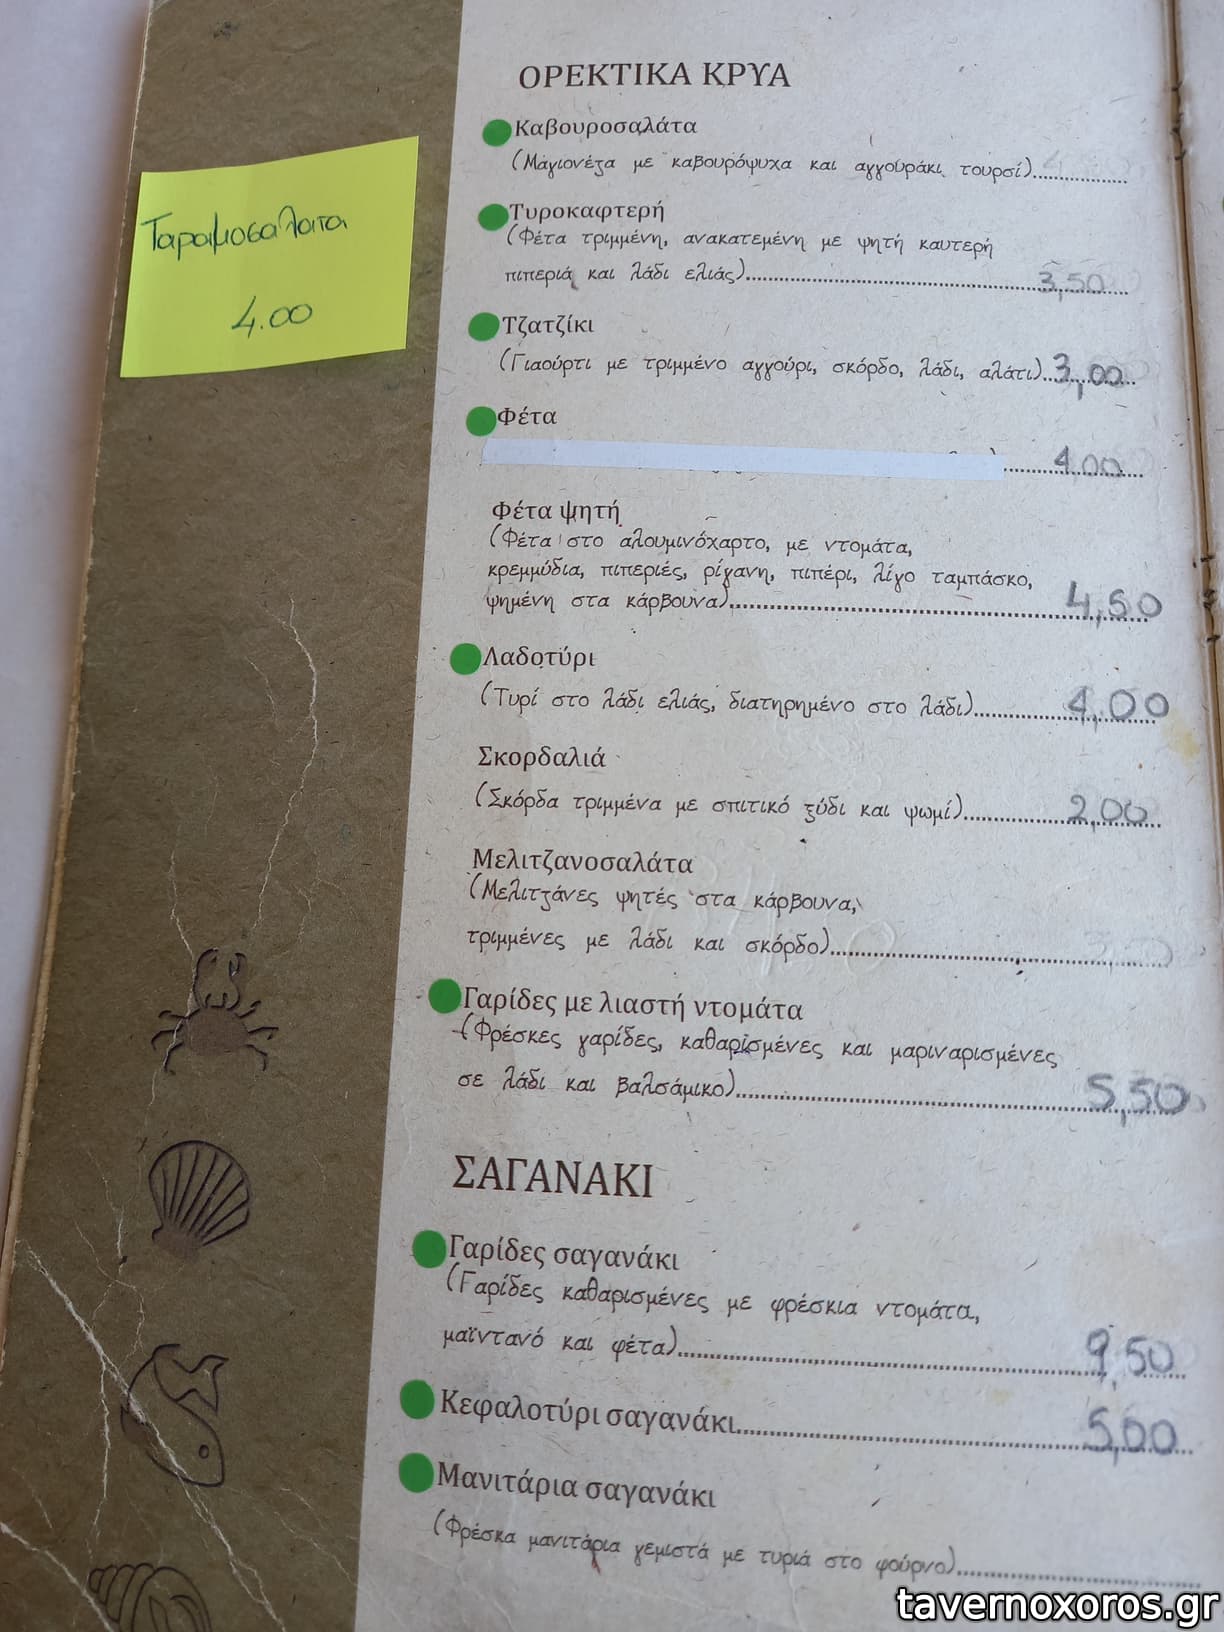 Ταραμοσαλατα
4.00
ΟΡΕΚΤΙΚΑ ΚΡΥΑ
Καβουροσαλάτα
(Μαγιονέζα με καβουρόψυχα και αγγουράκι τουρσί)
Τυροκαφτερή
(Φέτα τριμμένη, ανακατεμένη με ψητή καυτερή
πιπεριά και λάδι ελιάς) 3,50
Τζατζίκι
(Γιαούρτι με τριμμένο αγγούρι, σκόρδο, λάδι, αλάτι) 3,00
Φέτα
4,00
Φέτα ψητή
(Φέτα στο αλουμινόχαρτο, με ντομάτα,
κρεμμύδια, πιπεριές, ρίγανη, πιπέρι, λίγο ταμπάσκο,
ψημένη στα κάρβουνα) 4,50
Λαδοτύρι
(Τυρί στο λάδι ελιάς, διατηρημένο στο λάδι) 4,00
Σκορδαλιά
(Σκόρδα τριμμένα με σπιτικό ξύδι και ψωμί) 2,00
Μελιτζανοσαλάτα
(Μελιτζάνες ψητές στα κάρβουνα,
τριμμένες με λάδι και σκόρδο)
Γαρίδες με λιαστή ντομάτα
(Φρέσκες γαρίδες, καθαρισμένες και μαριναρισμένες
σε λάδι και βαλσάμικο) 5,50
ΣΑΓΑΝΑΚΙ
Γαρίδες σαγανάκι
(Γαρίδες καθαρισμένες με φρέσκια ντομάτα,
μαϊντανό και φέτα) 9,50
Κεφαλοτύρι σαγανάκι 5,00
Μανιτάρια σαγανάκι
(Φρέσκα μανιτάρια γεμιστά με τυριά στο φούρνο)
tavernoxoros.gr